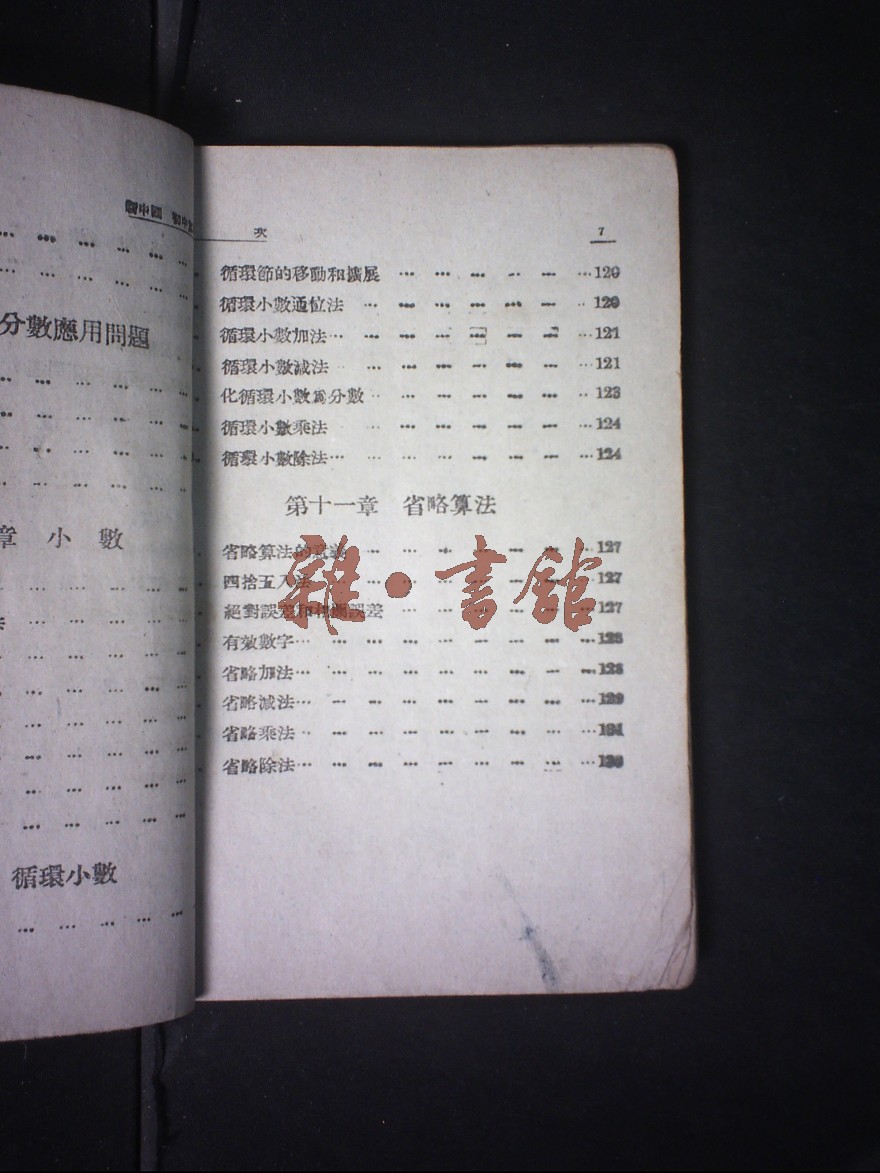 新中國 初中
分數應用問題
章 小 數
循環小數
次 7
循環節的移動和擴展 120
循環小數通位法 120
循環小數加法 121
循環小數減法 121
化循環小數爲分數 123
循環小數乘法 124
循環小數除法 124
第十一章 省略算法
省略算法的意義 127
四捨五入法 127
絕對誤差和相對誤差 127
有效數字 128
省略加法 128
省略減法 129
省略乘法
省略除法
雜·書館